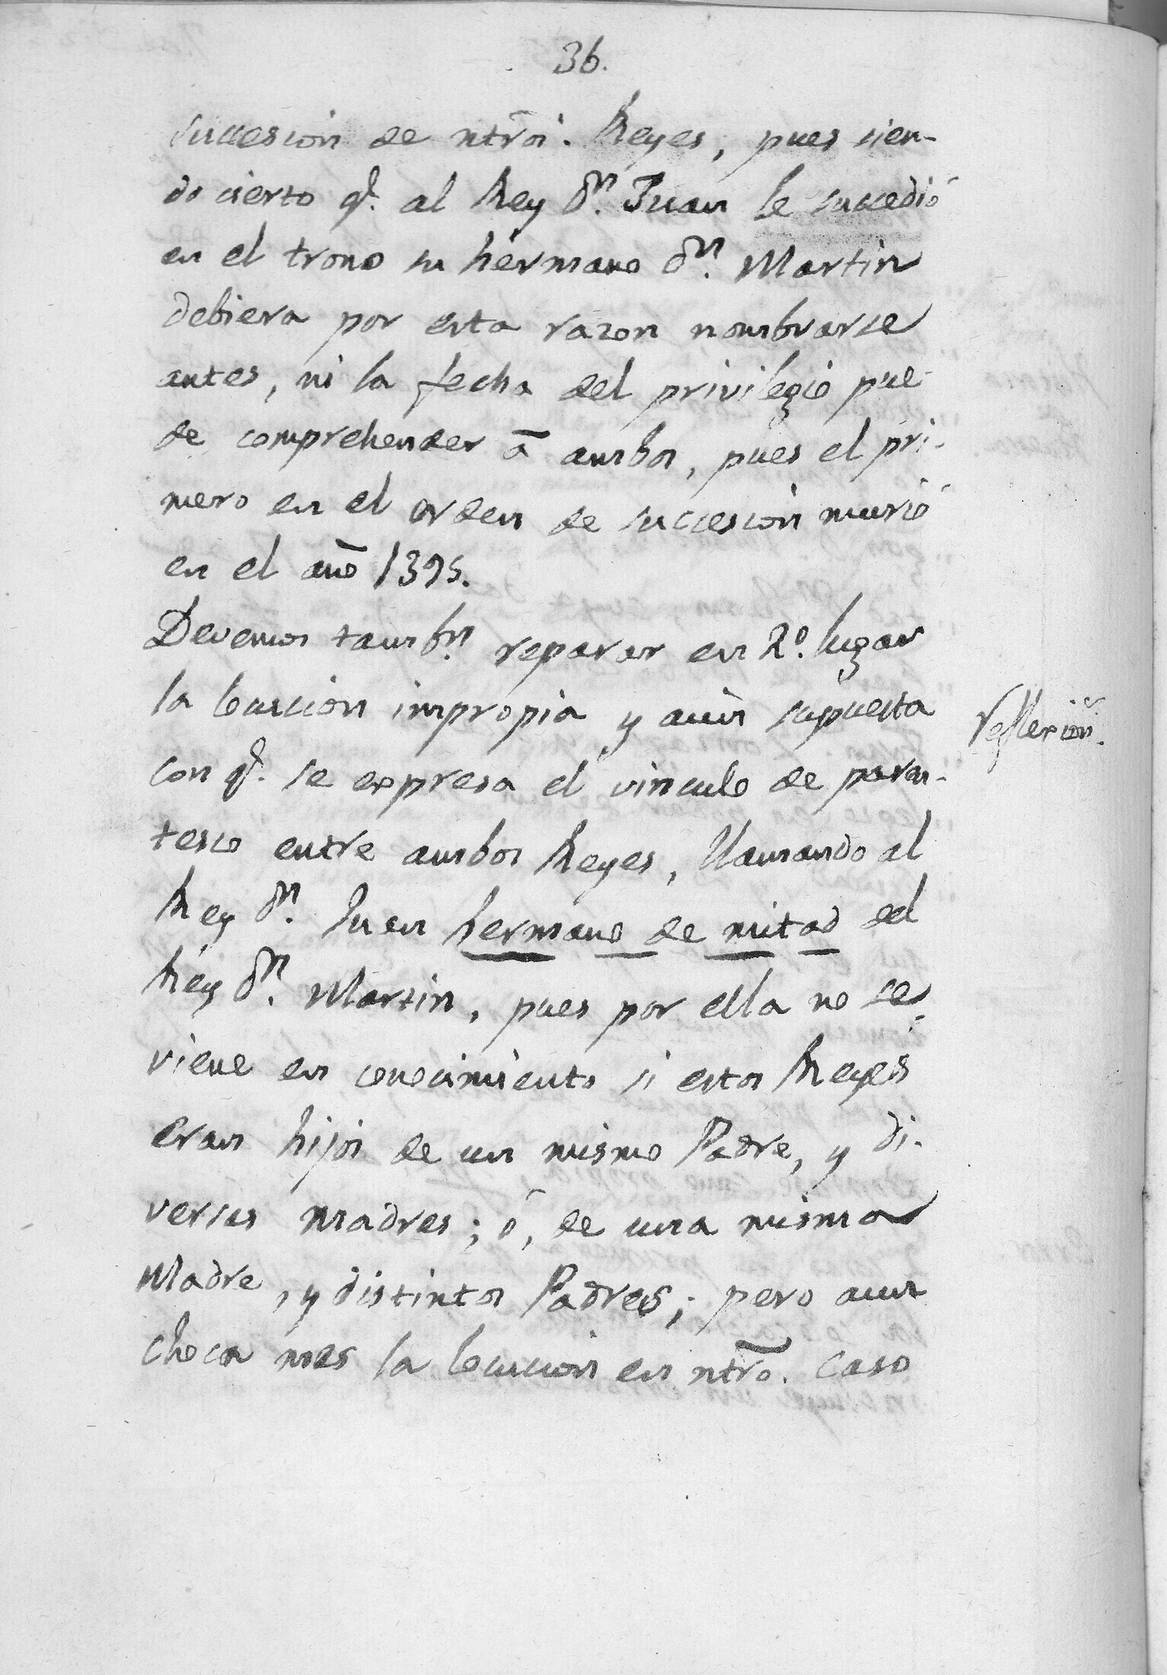 36.
succesion de ntr̃os. Reyes, pues sien-
do cierto q.ͤ al Rey Dⁿ. Juan le sucedió
en el trono su hermano Dⁿ. Martin
debiera por esta razon nombrarse
antes, ni la fecha del privilegio pue-
de comprehender ā ambos, pues el pri-
mero en el orden de succesion murió
en el año 1395.
Devemos tambⁿ. reparar en 2º. lugar
la locucion impropia y aun supuesta
Reflexion.
con q.ͤ se expresa el vinculo de paren-
tesco entre ambos Reyes, llamando al
Rey Dⁿ. Juan hermano de mitad del
Rey Dⁿ. Martin, pues por ella no se
viene en conocimiento si estos Reyes
eran hijos de un mismo Padre, y di-
versas madres; ó, de una misma
Madre, y distintos Padres; pero aun
choca mas la locucion en ntr̃o. caso